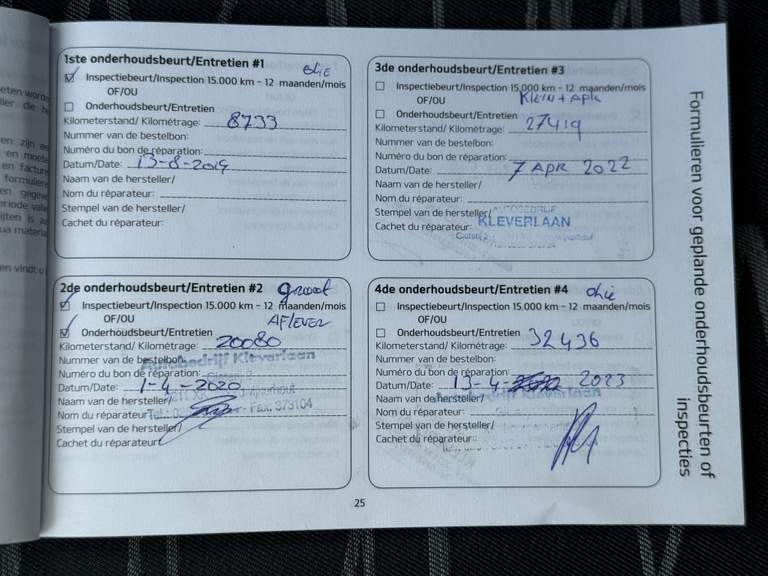 1ste onderhoudsbeurt/Entretien #1
olie
Inspectiebeurt/Inspection 15.000 km - 12 maanden/mois
OF/OU
Onderhoudsbeurt/Entretien
Kilometerstand/ Kilométrage: 8733
Nummer van de bestelbon:
Numéro du bon de réparation:
Datum/Date: 13-8-2019
Naam van de hersteller/
Nom du réparateur:
Stempel van de hersteller/
Cachet du réparateur:
2de onderhoudsbeurt/Entretien #2 groot
Inspectiebeurt/Inspection 15.000 km - 12 maanden/mois
OF/OU AFLEVER
Onderhoudsbeurt/Entretien
Kilometerstand/ Kilométrage: 20080
Nummer van de bestelbon:
Autobedrijf Kleverlaan
Numéro du bon de réparation:
Datum/Date: 1-4-2020
Naam van de hersteller/
Nom du réparateur:
Tel.: Fax: 379104
Stempel van de hersteller/
Cachet du réparateur:
3de onderhoudsbeurt/Entretien #3
Inspectiebeurt/Inspection 15.000 km - 12 maanden/mois
OF/OU Klein + APK
Onderhoudsbeurt/Entretien
Kilometerstand/ Kilométrage: 27419
Nummer van de bestelbon:
Numéro du bon de réparation:
Datum/Date: 7 APR 2022
Naam van de hersteller/
Nom du réparateur:
Stempel van de hersteller/ AUTOBEDRIJF
Cachet du réparateur: KLEVERLAAN
4de onderhoudsbeurt/Entretien #4 olie
Inspectiebeurt/Inspection 15.000 km - 12 maanden/mois
OF/OU
Onderhoudsbeurt/Entretien
Kilometerstand/ Kilométrage: 32436
Nummer van de bestelbon:
Numéro du bon de réparation:
Datum/Date: 13-4- 2023
Naam van de hersteller/ Autobedrijf Kleverlaan
Nom du réparateur:
Stempel van de hersteller/
Cachet du réparateur:
25
Formulieren voor geplande onderhoudsbeurten of
inspecties